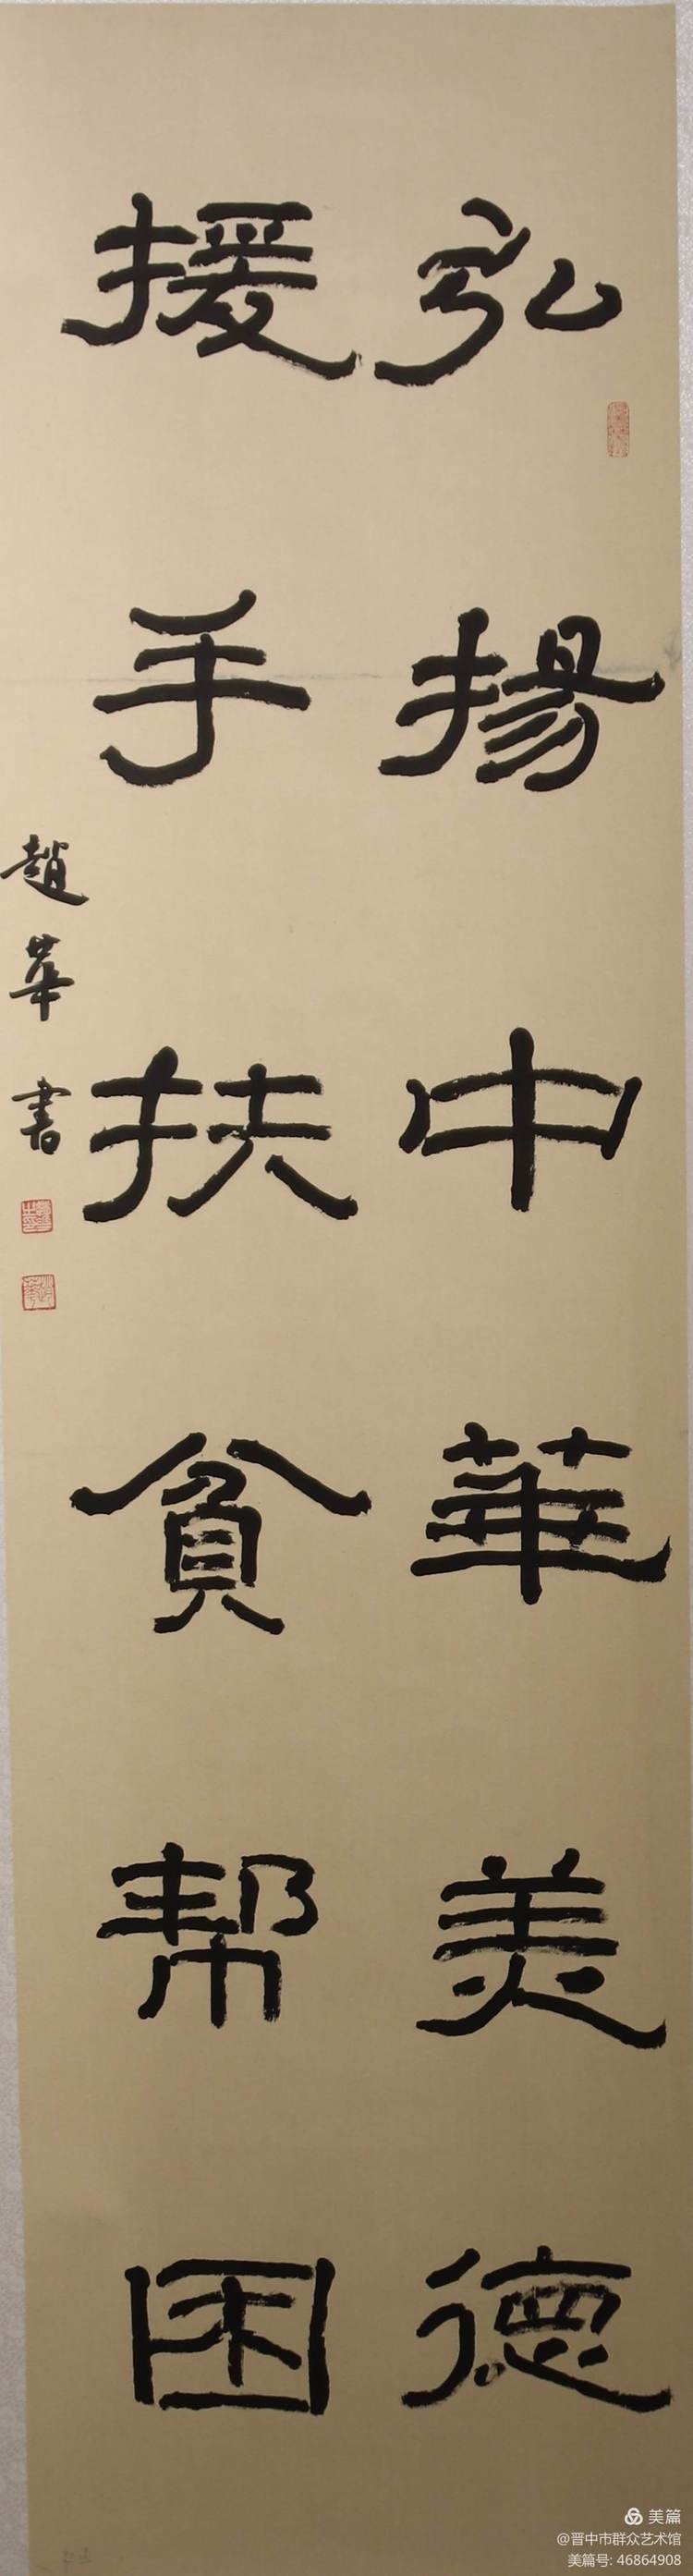 弘揚中華美德
援手扶貧帮困
趙華書
美篇
@晋中市群众艺术馆
美篇号: 46864908